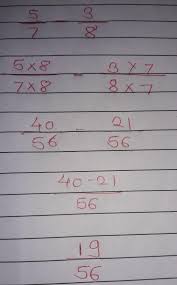 5/7 - 3/8
5×8/7×8 - 3×7/8×7
40/56 - 21/56
40-21/56
19/56